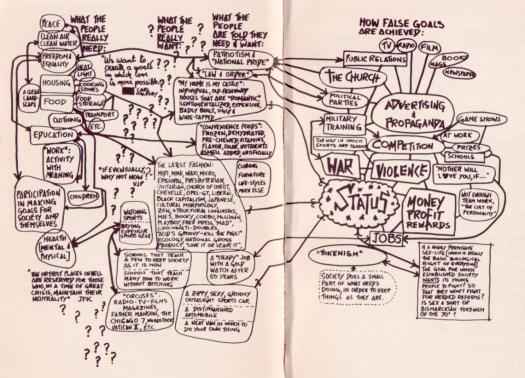 WHAT THE
PEOPLE
REALLY
NEED:
PEACE
CLEAN AIR
CLEAN WATER
FREEDOM &
EQUALITY
HEAT
LIGHT
HOUSING
COOKING
STOVES
A GEAR
LAND-
SCAPE
FOOD
FOOD
STORAGE
CLOTHING
TRANSPORT
ETC.
EDUCATION
"WORK":
ACTIVITY
WITH
MEANING
PARTICIPATION
IN MAKING
GOALS FOR
SOCIETY AND
THEMSELVES
CHILDREN
HEALTH
MENTAL &
PHYSICAL
"THE HOTTEST PLACES IN HELL
ARE RESERVED FOR THOSE
WHO, IN A TIME OF GREAT
CRISIS, MAINTAIN THEIR
NEUTRALITY" JFK
WHAT THE
PEOPLE
REALLY
WANT:
We want to
create a world
in which love
is more possible
"IF EVENTUALLY,
WHY NOT NOW?"
WATCHING
SPORTS
BUYING
EXPENSIVE
SPORTS GEAR
SCHOOLS THAT TEACH
A FEW TO KEEP SOCIETY
AS IT IS NOW
SCHOOLS THAT TEACH
MANY HOW TO WORK
WITHOUT BITCHING
"CIRCUSES"
RADIO-TV-FILMS
MAGAZINES,
FATHER MANSON, THE
CHICAGO 7, WOODSTOCK
VATICAN II, ETC.
WHAT THE
PEOPLE
ARE TOLD THEY
NEED & WANT:
PATRIOTISM &
"NATIONAL PRIDE"
"LAW & ORDER"
"MY HOME IS MY CASTLE":
INDIVIDUAL, OLD-FASHIONED
HOUSES THAT ARE "ROMANTIC"
SENTIMENTALIZED, EXPENSIVE,
BADLY BUILT, UGLY &
WIRE-TAPPED
"CONVENIENCE FOODS":
FROZEN, DEHYDRATED,
PRE-CHEWED, VITAMINS,
FLAVOR, COLOR, NUTRIENTS
& SMELL ADDED ARTIFICIALLY
THE LATEST FASHION:
MIDI, MINI, MAXI, MICRO,
EPISCOPAL, PRESBYTERIAN
UNITARIAN, CHURCH OF CHRIST,
CHEVELLE, OPEL-GT, LIBERAL,
BLACK CAPITALISM, JAPANESE,
CULTURAL MORPHOLOGY,
ZEN, STRUCTURAL LINGUISTICS
MIES, BUCKY, CORBU, MCLUHAN
PLAYBOY, FREE PRESS, "MAD",
CINCINNATI-DOUBLES,
"ACID'S GROOVY-KILL THE PIGS"
ECOLOGY, NATIONAL GROSS
PRODUCT, "LOVE IT OR LEAVE IT"
CLOTHING
FURNITURE
LIFE-STYLES
MACH ELSE
A "STEADY" JOB
WITH A GOLD
WATCH AFTER
50 YEARS
A ZIPPY, SEXY, GROOVY
OUTASIGHT SPORTS CAR
A DISTINGUISHED
AUTOMOBILE
A NEAT VAN IN WHICH TO
DO YOUR OWN THING
HOW FALSE GOALS
ARE ACHIEVED:
TV
RADIO
FILM
BOOKS
MAGS.
NEWSPAPERS
PUBLIC RELATIONS
THE CHURCH
POLITICAL
PARTIES
ADVERTISING
& PROPAGANDA
MILITARY
TRAINING
GAME SHOWS
AT WORK
THE WAY IN WHICH
SPORTS ARE TAUGHT
COMPETITION
PRIZES
SCHOOLS
WAR
VIOLENCE
"MOTHER WILL
LOVE YOU, IF..."
STATUS
MONEY
PROFIT
REWARDS
NOT ENOUGH
TEAM WORK,
"THE CULT OF
PERSONALITY"
JOBS
"TOKENISM"
SOCIETY DOES A SMALL
PART OF WHAT NEEDS
DOING, IN ORDER TO KEEP
THINGS AS THEY ARE.
IS A MORE PERMISSIVE
SEX-LIFE (WHICH IS REALLY
THE BASIC BIOLOGICAL
RIGHT OF EVERYONE)
THE GOAL FOR WHICH
ESTABLISHED SOCIETY
WANTS ITS YOUNG
PEOPLE TO FIGHT? SO
THAT THEY WON'T FIGHT
FOR NEEDED REFORMS?
IS SEX A SORT OF
BISMARCKIAN TOKENISM
OF THE 70'?